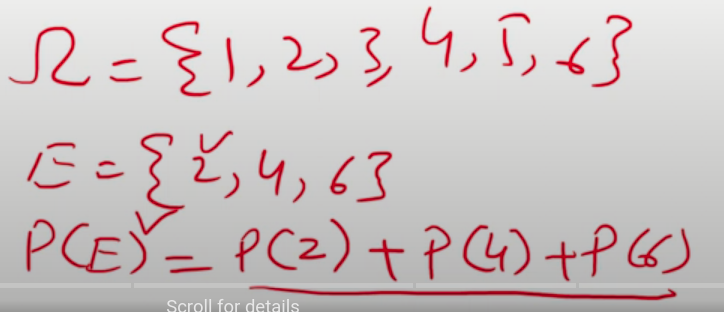 Ω = {1, 2, 3, 4, 5, 6}
E = {2, 4, 6}
P(E) = P(2) + P(4) + P(6)
Scroll for details